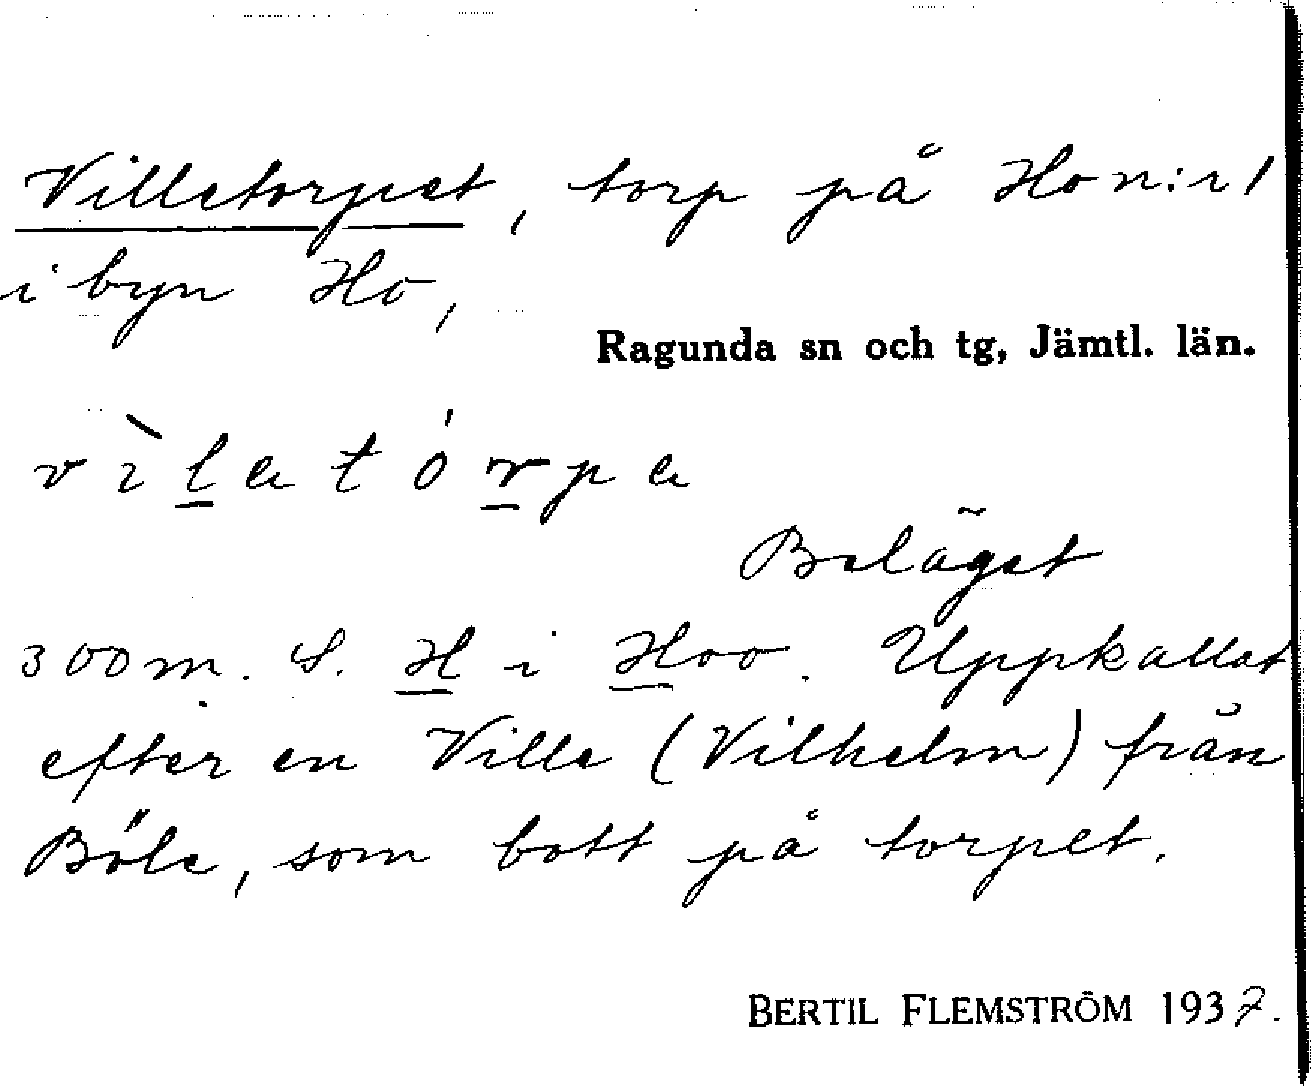 Villetorpet, torp på Ho n:r 1
i byn Ho,
Ragunda sn och tg, Jämtl. län.
vìlatórpa
Beläget
300 m. S. H i Hoo. Uppkallat
efter en Ville (Vilhelm) från
Böle, som bott på torpet.
BERTIL FLEMSTRÖM 1937.